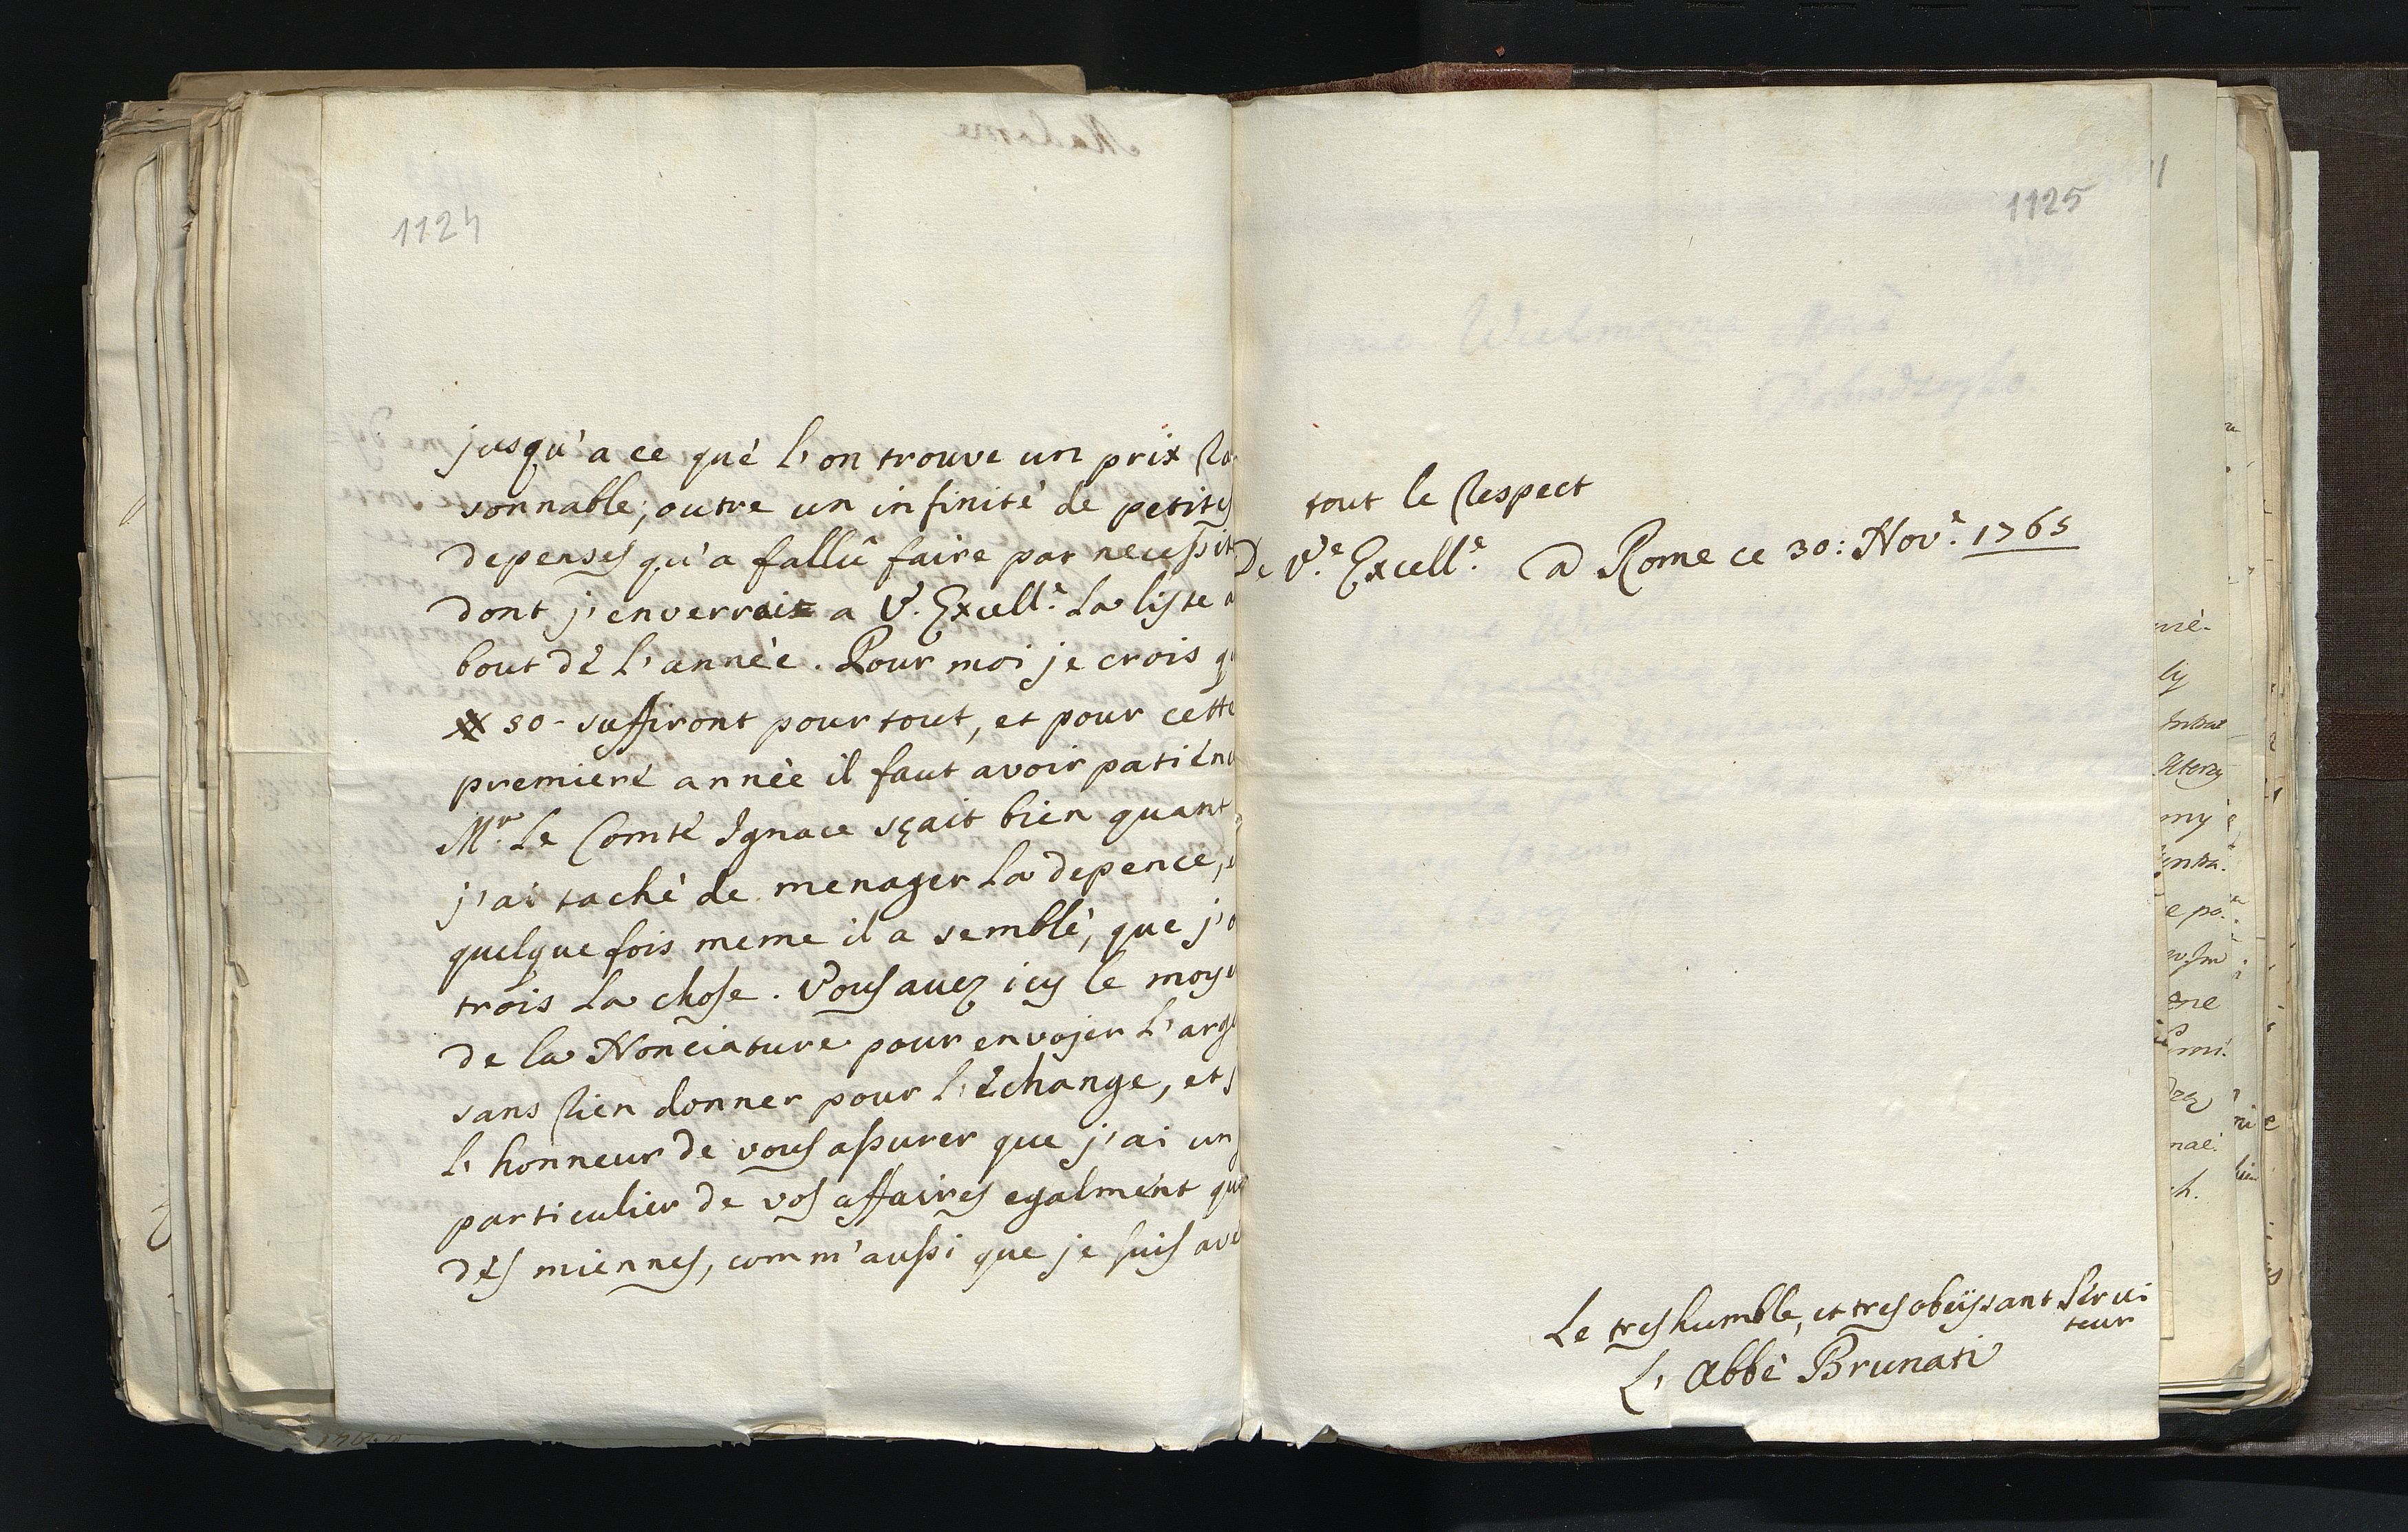 1124
jusqu'a ce què l'on trouve un prix Ra
sonnable; outre un infinitè de petites
depenses qu'a fallû faire par necessit
dont j'enverrai a V. Excell.e La liste a
bout dè l'annèe. Pour moi je crois qu
50 - suffiront pour tout, et pour cette
premierè annèe il faut avoir patienc
M.r Le Comtè Ignace sçait bien quant
j'ai tachè de menager La depence,
quelque fois meme il a semblè, que j'o
trois La chose. Vous auez icy le moye
de la Nonciature pour envojer L'arge
sans Rien donner pour l'Echange, et j
l'honneur de vous assurer que j'ai un
particulier de vos affaires egalmènt que
dès miennes, comm'aussi que je suis ave
1125
tout le Respect
De V.e Excell.e A Rome ce 30: Nov.e 1765
Le tres humble, et tres obeïssant Sèrui
teur
L'Abbè Brunati